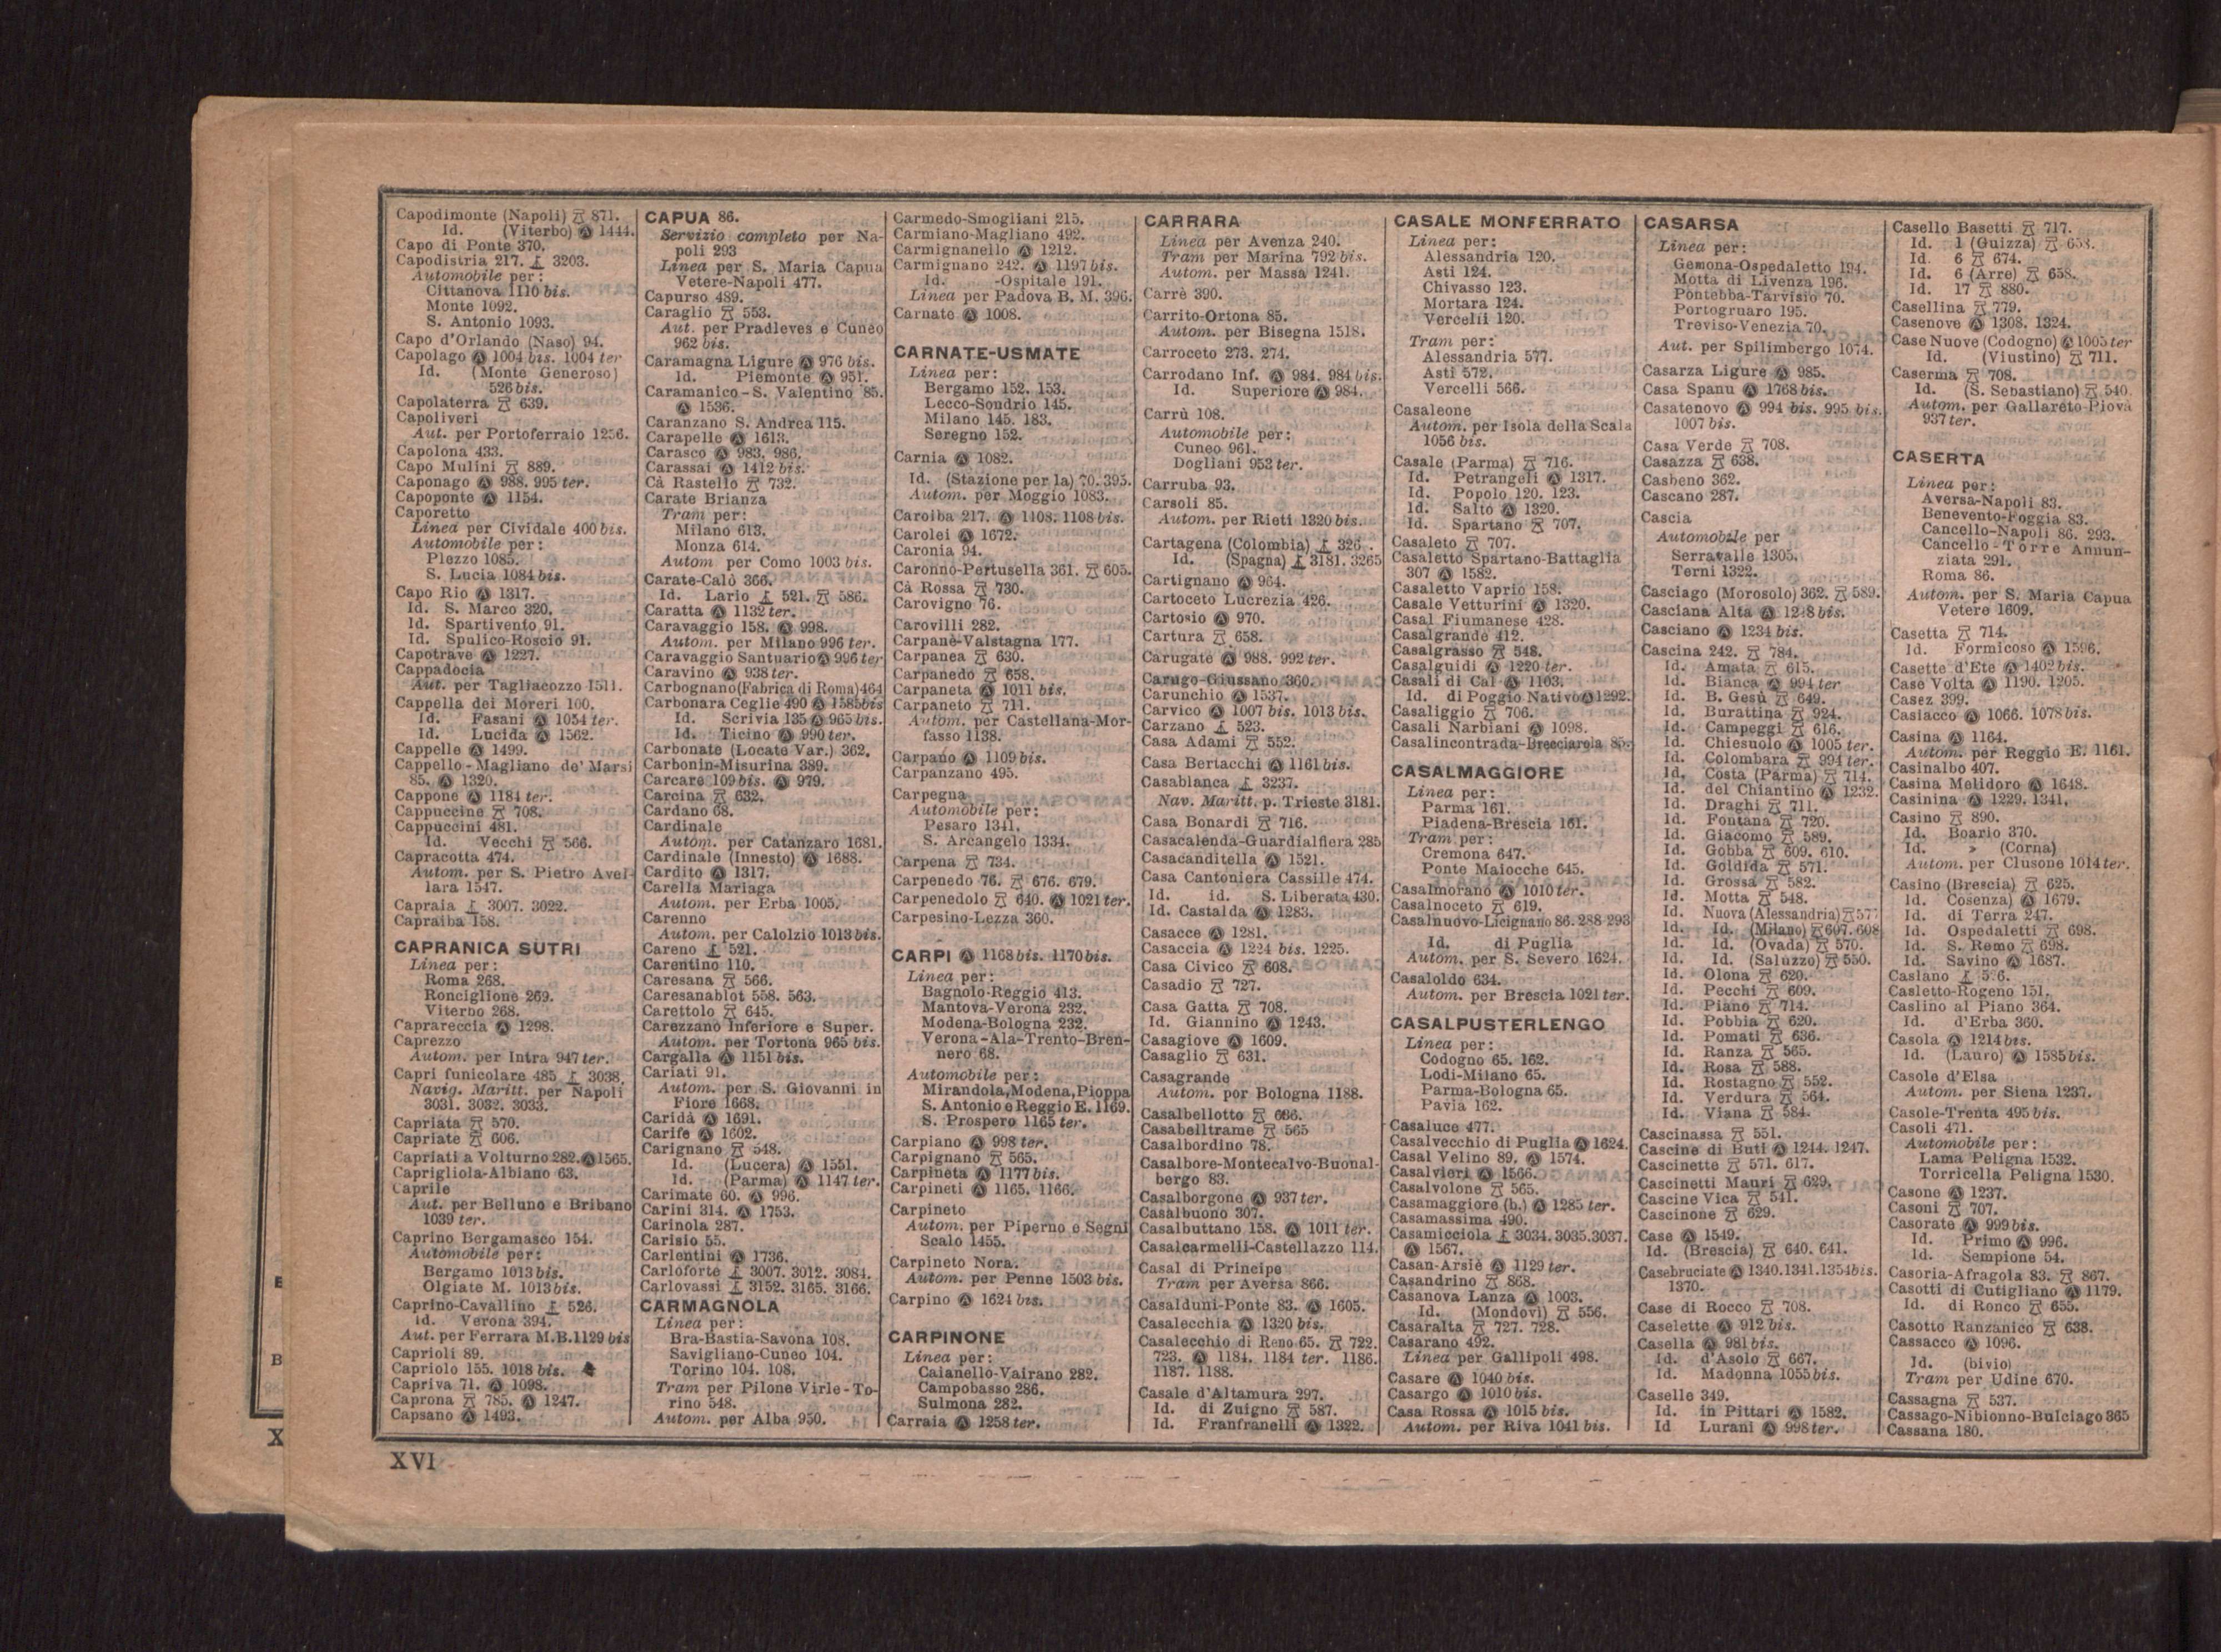 Capodimonte (Napoli) 871.
Id. (Viterbo) Ⓐ 1444.
Capo di Ponte 370.
Capodistria 217. 3203.
Automobile per:
Cittanova 1110 bis.
Monte 1092.
S. Antonio 1093.
Capo d'Orlando (Naso) 94.
Capolago Ⓐ 1004 bis. 1004 ter
Id. (Monte Generoso)
526 bis.
Capolaterra 639.
Capoliveri
Aut. per Portoferraio 1256.
Capolona 433.
Capo Mulini 889.
Caponago Ⓐ 988. 995 ter.
Capoponte Ⓐ 1154.
Caporetto
Linea per Cividale 400 bis.
Automobile per:
Plezzo 1085.
S. Lucia 1084 bis.
Capo Rio Ⓐ 1317.
Id. S. Marco 320.
Id. Spartivento 91.
Id. Spulico-Roscio 91.
Capotrave Ⓐ 1227.
Cappadocia
Aut. per Tagliacozzo 1511.
Cappella dei Moreri 100.
Id. Fasani Ⓐ 1054 ter.
Id. Lucida Ⓐ 1562.
Cappelle Ⓐ 1499.
Cappello-Magliano de' Marsi
85. Ⓐ 1320.
Cappone Ⓐ 1184 ter.
Cappuccine 708.
Cappuccini 481.
Id. Vecchi 566.
Capracotta 474.
Autom. per S. Pietro Avel-
lara 1547.
Capraia 3007. 3022.
Capraiba 158.
CAPRANICA SUTRI
Linea per:
Roma 268.
Ronciglione 269.
Viterbo 268.
Caprareccia Ⓐ 1298.
Caprezzo
Autom. per Intra 947 ter.
Capri funicolare 485 3038.
Navig. Maritt. per Napoli
3031. 3032. 3033.
Capriata 570.
Capriate 606.
Capriati a Volturno 282. Ⓐ 1565.
Caprigliola-Albiano 63.
Caprile
Aut. per Belluno e Bribano
1039 ter.
Caprino Bergamasco 154.
Automobile per:
Bergamo 1013 bis.
Olgiate M. 1013 bis.
Caprino-Cavallino 526.
Id. Verona 394.
Aut. per Ferrara M.B. 1129 bis
Caprioli 89.
Capriolo 155. 1018 bis.
Capriva 71. Ⓐ 1098.
Caprona 785. Ⓐ 1247.
Capsano Ⓐ 1493.
CAPUA 86.
Servizio completo per Na-
poli 293
Linea per S. Maria Capua
Vetere-Napoli 477.
Capurso 489.
Caraglio 553.
Aut. per Pradleves e Cuneo
962 bis.
Caramagna Ligure Ⓐ 976 bis.
Id. Piemonte Ⓐ 951.
Caramanico-S. Valentino 85.
Ⓐ 1536.
Caranzano S. Andrea 115.
Carapelle Ⓐ 1613.
Carasco Ⓐ 983. 986.
Carassai Ⓐ 1412 bis.
Cà Rastello 732.
Carate Brianza
Tram per:
Milano 613.
Monza 614.
Autom per Como 1003 bis.
Carate-Calò 366.
Id. Lario 521. 586.
Caratta Ⓐ 1132 ter.
Caravaggio 158. Ⓐ 998.
Autom. per Milano 996 ter.
Caravaggio Santuario Ⓐ 996 ter
Caravino Ⓐ 938 ter.
Carbognano (Fabrica di Roma) 464
Carbonara Ceglie 490 Ⓐ 1585 bis
Id. Scrivia 135 Ⓐ 965 bis.
Id. Ticino Ⓐ 990 ter.
Carbonate (Locate Var.) 362.
Carbonin-Misurina 389.
Carcare 109 bis. Ⓐ 979.
Carcina 632.
Cardano 68.
Cardinale
Autom. per Catanzaro 1681.
Cardinale (Innesto) Ⓐ 1688.
Cardito Ⓐ 1317.
Carella Mariaga
Autom. per Erba 1005.
Carenno
Autom. per Calolzio 1013 bis.
Careno 521.
Carentino 110.
Caresana 566.
Caresanablot 558. 563.
Carettolo 645.
Carezzano Inferiore e Super.
Autom. per Tortona 965 bis.
Cargalla Ⓐ 1151 bis.
Cariati 91.
Autom. per S. Giovanni in
Fiore 1668.
Caridà Ⓐ 1691.
Carife Ⓐ 1602.
Carignano 548.
Id. (Lucera) Ⓐ 1551.
Id. (Parma) Ⓐ 1147 ter.
Carimate 60. Ⓐ 996.
Carini 314. Ⓐ 1753.
Carinola 287.
Carisio 55.
Carlentini Ⓐ 1736.
Carloforte 3007. 3012. 3084.
Carlovassi 3152. 3165. 3166.
CARMAGNOLA
Linea per:
Bra-Bastia-Savona 108.
Savigliano-Cuneo 104.
Torino 104. 108.
Tram per Pilone Virle-To-
rino 548.
Autom. per Alba 950.
Carmedo-Smogliani 215.
Carmiano-Magliano 492.
Carmignanello Ⓐ 1212.
Carmignano 242. Ⓐ 1197 bis.
Id. -Ospitale 191.
Linea per Padova B. M. 396.
Carnate Ⓐ 1008.
CARNATE-USMATE
Linea per:
Bergamo 152. 153.
Lecco-Sondrio 145.
Milano 145. 183.
Seregno 152.
Carnia Ⓐ 1082.
Id. (Stazione per la) 70. 395.
Autom. per Moggio 1083.
Caroiba 217. Ⓐ 1108. 1108 bis.
Carolei Ⓐ 1672.
Caronia 94.
Caronno-Pertusella 361. 605.
Cà Rossa 730.
Carovigno 76.
Carovilli 282.
Carpanè-Valstagna 177.
Carpanea 630.
Carpanedo 658.
Carpaneta Ⓐ 1011 bis.
Carpaneto 711.
Autom. per Castellana-Mor-
fasso 1138.
Carpano Ⓐ 1109 bis.
Carpanzano 495.
Carpegna
Automobile per:
Pesaro 1341.
S. Arcangelo 1334.
Carpena 734.
Carpenedo 76. 676. 679.
Carpenedolo 640. Ⓐ 1021 ter.
Carpesino-Lezza 360.
CARPI Ⓐ 1168 bis. 1170 bis.
Linea per:
Bagnolo-Reggio 413.
Mantova-Verona 232.
Modena-Bologna 232.
Verona-Ala-Trento-Bren-
nero 68.
Automobile per:
Mirandola, Modena, Pioppa
S. Antonio e Reggio E. 1169.
S. Prospero 1165 ter.
Carpiano Ⓐ 998 ter.
Carpignano 565.
Carpineta Ⓐ 1177 bis.
Carpineti Ⓐ 1165. 1166.
Carpineto
Autom. per Piperno e Segni
Scalo 1455.
Carpineto Nora.
Autom. per Penne 1503 bis.
Carpino Ⓐ 1624 bis.
CARPINONE
Linea per:
Caianello-Vairano 282.
Campobasso 286.
Sulmona 282.
Carraia Ⓐ 1258 ter.
CARRARA
Linea per Avenza 240.
Tram per Marina 792 bis.
Autom. per Massa 1241.
Carrè 390.
Carrito-Ortona 85.
Autom. per Bisegna 1518.
Carroceto 273. 274.
Carrodano Inf. Ⓐ 984. 984 bis.
Id. Superiore Ⓐ 984.
Carrù 108.
Automobile per:
Cuneo 961.
Dogliani 953 ter.
Carruba 93.
Carsoli 85.
Autom. per Rieti 1320 bis.
Cartagena (Colombia) 326 .
Id. (Spagna) 3181. 3265
Cartignano Ⓐ 964.
Cartoceto Lucrezia 426.
Cartosio Ⓐ 970.
Cartura 658.
Carugate Ⓐ 988. 992 ter.
Carugo-Giussano 360.
Carunchio Ⓐ 1537.
Carvico Ⓐ 1007 bis. 1013 bis.
Carzano 523.
Casa Adami 552.
Casa Bertacchi Ⓐ 1161 bis.
Casablanca 3237.
Nav. Maritt. p. Trieste 3181.
Casa Bonardi 716.
Casacalenda-Guardialfiera 285
Casacanditella Ⓐ 1521.
Casa Cantoniera Cassille 474.
Id. id. S. Liberata 430.
Id. Castalda Ⓐ 1283.
Casacce Ⓐ 1281.
Casaccia Ⓐ 1224 bis. 1225.
Casa Civico 608.
Casadio 727.
Casa Gatta 708.
Id. Giannino Ⓐ 1243.
Casagiove Ⓐ 1609.
Casaglio 631.
Casagrande
Autom. por Bologna 1188.
Casalbellotto 686.
Casabelltrame 565
Casalbordino 78.
Casalbore-Montecalvo-Buonal-
bergo 83.
Casalborgone Ⓐ 937 ter.
Casalbuono 307.
Casalbuttano 158. Ⓐ 1011 ter.
Casalcarmelli-Castellazzo 114.
Casal di Principe
Tram per Aversa 866.
Casalduni-Ponte 83. Ⓐ 1605.
Casalecchia Ⓐ 1320 bis.
Casalecchio di Reno 65. 722.
723. Ⓐ 1184. 1184 ter. 1186.
1187. 1188.
Casale d'Altamura 297.
Id. di Zuigno 587.
Id. Franfranelli Ⓐ 1322.
CASALE MONFERRATO
Linea per:
Alessandria 120.
Asti 124.
Chivasso 123.
Mortara 124.
Vercelli 120.
Tram per:
Alessandria 577.
Asti 572.
Vercelli 566.
Casaleone
Autom. per Isola della Scala
1056 bis.
Casale (Parma) 716.
Id. Petrangeli Ⓐ 1317.
Id. Popolo 120. 123.
Id. Salto Ⓐ 1320.
Id. Spartano 707.
Casaleto 707.
Casaletto Spartano-Battaglia
307 Ⓐ 1582.
Casaletto Vaprio 158.
Casale Vetturini Ⓐ 1320.
Casal Fiumanese 428.
Casalgrande 412.
Casalgrasso 548.
Casalguidi Ⓐ 1220 ter.
Casali di Cal Ⓐ 1103.
Id. di Poggio Nativo Ⓐ 1292.
Casaliggio 706.
Casali Narbiani Ⓐ 1098.
Casalincontrada-Brecciarola 85.
CASALMAGGIORE
Linea per:
Parma 161.
Piadena-Brescia 161.
Tram per:
Cremona 647.
Ponte Maiocche 645.
Casalmorano Ⓐ 1010 ter.
Casalnoceto 619.
Casalnuovo-Licignano 86. 288 293
Id. di Puglia
Autom. per S. Severo 1624.
Casaloldo 634.
Autom. per Brescia 1021 ter.
CASALPUSTERLENGO
Linea per:
Codogno 65. 162.
Lodi-Milano 65.
Parma-Bologna 65.
Pavia 162.
Casaluce 477.
Casalvecchio di Puglia Ⓐ 1624.
Casal Velino 89. Ⓐ 1574.
Casalvieri Ⓐ 1566.
Casalvolone 565.
Casamaggiore (b.) Ⓐ 1285 ter.
Casamassima 490.
Casamicciola 3034. 3035. 3037.
Ⓐ 1567.
Casan-Arsiè Ⓐ 1129 ter.
Casandrino 868.
Casanova Lanza Ⓐ 1003.
Id. (Mondovì) 556.
Casaralta 727. 728.
Casarano 492.
Linea per Gallipoli 498.
Casare Ⓐ 1040 bis.
Casargo Ⓐ 1010 bis.
Casa Rossa Ⓐ 1015 bis.
Autom. per Riva 1041 bis.
CASARSA
Linea per:
Gemona-Ospedaletto 194.
Motta di Livenza 196.
Pontebba-Tarvisio 70.
Portogruaro 195.
Treviso-Venezia 70.
Aut. per Spilimbergo 1074.
Casarza Ligure Ⓐ 985.
Casa Spanu Ⓐ 1768 bis.
Casatenovo Ⓐ 994 bis. 995 bis.
1007 bis.
Casa Verde 708.
Casazza 638.
Casbeno 362.
Cascano 287.
Cascia
Automobile per
Serravalle 1305.
Terni 1322.
Casciago (Morosolo) 362. 589.
Casciana Alta Ⓐ bis.
Casciano Ⓐ 1234 bis.
Cascina 242. 784.
Id. Amata 615.
Id. Bianca Ⓐ 994 ter
Id. B. Gesù 649.
Id. Burattina 924.
Id. Campeggi 616.
Id. Chiesuolo Ⓐ 1005 ter.
Id. Colombara 994 ter.
Id. Costa (Parma) 714.
Id. del Chiantino Ⓐ 1232.
Id. Draghi 711.
Id. Fontana 720.
Id. Giacomo 589.
Id. Gobba 609. 610.
Id. Goldida 571.
Id. Grossa 582.
Id. Motta 548.
Id. Nuova (Alessandria) 577
Id. Id. (Milano) 607. 608
Id. Id. (Ovada) 570.
Id. Id. (Saluzzo) 550.
Id. Olona 620.
Id. Pecchi 609.
Id. Piano 714.
Id. Pobbia 620.
Id. Pomati 636.
Id. Ranza 565.
Id. Rosa 588.
Id. Rostagno 552.
Id. Verdura 564.
Id. Viana 584.
Cascinassa 551.
Cascine di Buti Ⓐ 1244. 1247.
Cascinette 571. 617.
Cascinetti Mauri 629.
Cascine Vica 541.
Cascinone 629.
Case Ⓐ 1549.
Id. (Brescia) 640. 641.
Casebruciate Ⓐ 1340. 1341. 1354 bis.
1370.
Case di Rocco 708.
Caselette Ⓐ 912 bis.
Casella Ⓐ 981 bis.
Id. d'Asolo 667.
Id. Madonna 1055 bis.
Caselle 349.
Id. in Pittari Ⓐ 1582.
Id Lurani Ⓐ 998 ter.
Casello Basetti 717.
Id. 1 (Guizza) 658.
Id. 6 674.
Id. 6 (Arre) 658.
Id. 17 880.
Casellina 779.
Casenove Ⓐ 1308. 1324.
Case Nuove (Codogno) Ⓐ 1005 ter
Id. (Viustino) 711.
Caserma 708.
Id. (S. Sebastiano) 540.
Autom. per Gallareto-Piovà
937 ter.
CASERTA
Linea per:
Aversa-Napoli 83.
Benevento-Foggia 83.
Cancello-Napoli 86. 293.
Cancello-Torre Annun-
ziata 291.
Roma 86.
Autom. per S. Maria Capua
Vetere 1609.
Casetta 714.
Id. Formicoso Ⓐ 1596.
Casette d'Ete Ⓐ 1402 bis.
Case Volta Ⓐ 1190. 1205.
Casez 399.
Casiacco Ⓐ 1066. 1078 bis.
Casina Ⓐ 1164.
Autom. per Reggio E. 1161.
Casinalbo 407.
Casina Melidoro Ⓐ 1648.
Casinina Ⓐ 1229. 1341.
Casino 890.
Id. Boario 370.
Id. » (Corna)
Autom. per Clusone 1014 ter.
Casino (Brescia) 625.
Id. Cosenza) Ⓐ 1679.
Id. di Terra 247.
Id. Ospedaletti 698.
Id. S. Remo 698.
Id. Savino Ⓐ 1687.
Caslano
Casletto-Rogeno 151.
Caslino al Piano 364.
Id. d'Erba 360.
Casola Ⓐ 1214 bis.
Id. (Lauro) Ⓐ 1585 bis.
Casole d'Elsa
Autom. per Siena 1237.
Casole-Trenta 495 bis.
Casoli 471.
Automobile per:
Lama Peligna 1532.
Torricella Peligna 1530.
Casone Ⓐ 1237.
Casoni 707.
Casorate Ⓐ 999 bis.
Id. Primo Ⓐ 996.
Id. Sempione 54.
Casoria-Afragola 83. 867.
Casotti di Cutigliano Ⓐ 1179.
Id. di Ronco 655.
Casotto Ranzanico 638.
Cassacco Ⓐ 1096.
Id. (bivio)
Tram per Udine 670.
Cassagna 537.
Cassago-Nibionno-Bulciago 365
Cassana 180.
XVI